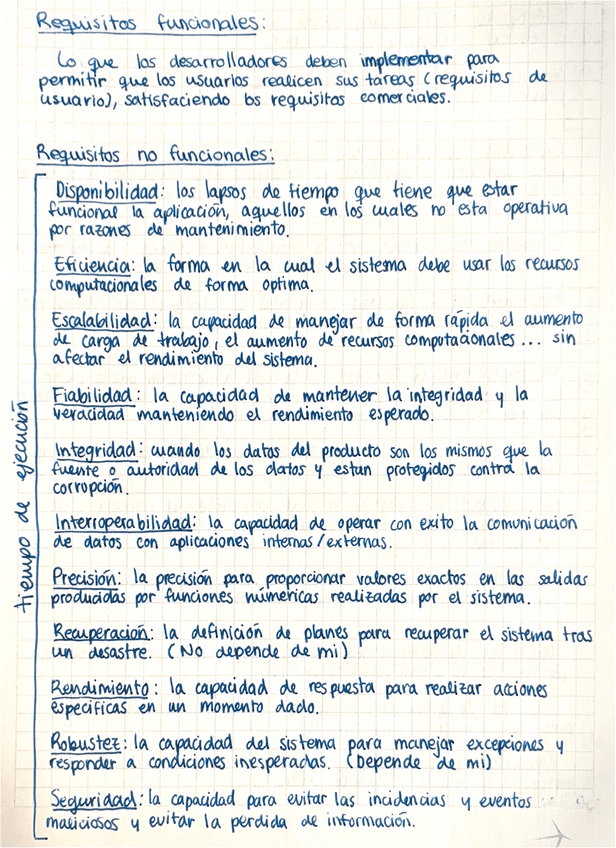 Requisitos funcionales:
Lo que los desarrolladores deben implementar para
permitir que los usuarios realicen sus tareas (requisitos de
usuario), satisfaciendo los requisitos comerciales.
Requisitos no funcionales:
Disponibilidad: los lapsos de tiempo que tiene que estar
funcional la aplicación, aquellos en los cuales no esta operativa
por razones de mantenimiento.
Eficiencia: la forma en la cual el sistema debe usar los recursos
computacionales de forma optima.
Escalabilidad: la capacidad de manejar de forma rápida el aumento
de carga de trabajo, el aumento de recursos computacionales... sin
afectar el rendimiento del sistema.
Fiabilidad: la capacidad de mantener la integridad y la
veracidad manteniendo el rendimiento esperado.
Integridad: cuando los datos del producto son los mismos que la
fuente o autoridad de los datos y estan protegidos contra la
corrupción.
Interroperabilidad: la capacidad de operar con exito la comunicación
de datos con aplicaciones internas/externas.
Precisión: la precisión para proporcionar valores exactos en las salidas
producidas por funciones númericas realizadas por el sistema.
Recuperación: la definición de planes para recuperar el sistema tras
un desastre. (No depende de mi)
Rendimiento: la capacidad de respuesta para realizar acciones
especificas en un momento dado.
Robustez: la capacidad del sistema para manejar excepciones y
responder a condiciones inesperadas. (Depende de mi)
Seguridad: la capacidad para evitar las incidencias y eventos
maliciosos y evitar la perdida de información.
tiempo de ejecución